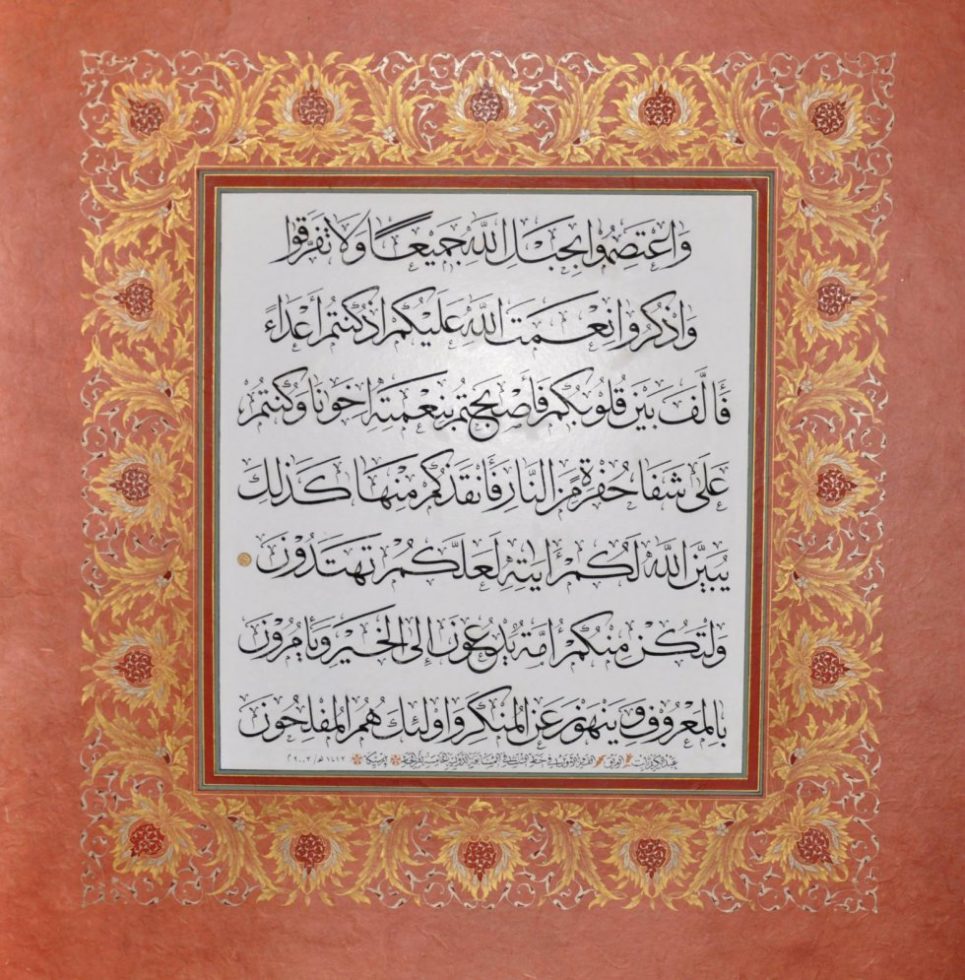 وَاعْتَصِمُوا بِحَبْلِ اللَّهِ جَمِيعًا وَلَا تَفَرَّقُوا
وَاذْكُرُوا نِعْمَتَ اللَّهِ عَلَيْكُمْ إِذْ كُنْتُمْ أَعْدَاءً
فَأَلَّفَ بَيْنَ قُلُوبِكُمْ فَأَصْبَحْتُمْ بِنِعْمَتِهِ إِخْوَنًا وَكُنْتُمْ
عَلَى شَفَا حُفْرَةٍ مِنَ النَّارِ فَأَنْقَذَكُمْ مِنْهَا كَذَلِكَ
يُبَيِّنُ اللَّهُ لَكُمْ ءَايَتِهِ لَعَلَّكُمْ تَهْتَدُونَ
وَلْتَكُنْ مِنْكُمْ أُمَّةٌ يَدْعُونَ إِلَى الْخَيْرِ وَيَأْمُرُونَ
بِالْمَعْرُوفِ وَيَنْهَوْنَ عَنِ الْمُنْكَرِ وَأُولَئِكَ هُمُ الْمُفْلِحُونَ